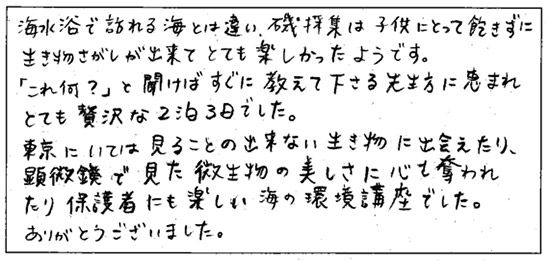 海水浴で訪れる海とは違い、磯採集は子供にとって飽きずに
生き物さがしが出来てとても楽しかったようです。
「これ何？」と聞けばすぐに教えて下さる先生方に恵まれ
とても贅沢な2泊3日でした。
東京にいては見ることの出来ない生き物に出会えたり、
顕微鏡で見た微生物の美しさに心を奪われ
たり保護者にも楽しい海の環境講座でした。
ありがとうございました。